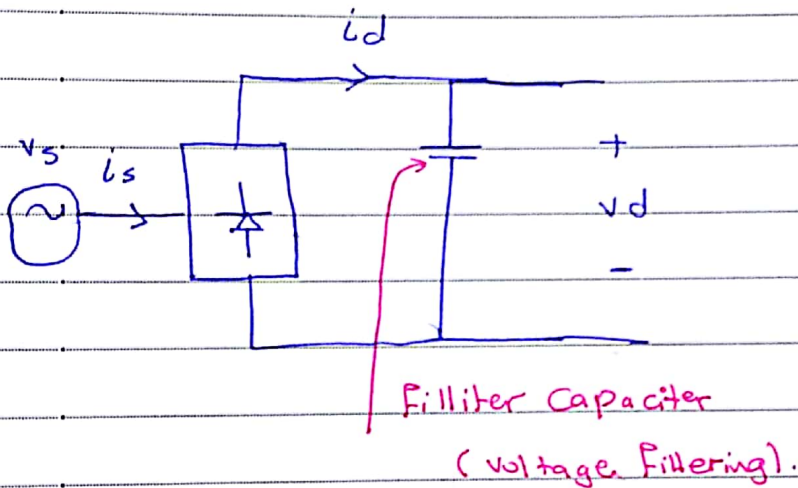 id
vs
is
+
vd
-
Filliter Capaciter
(voltage fillering).